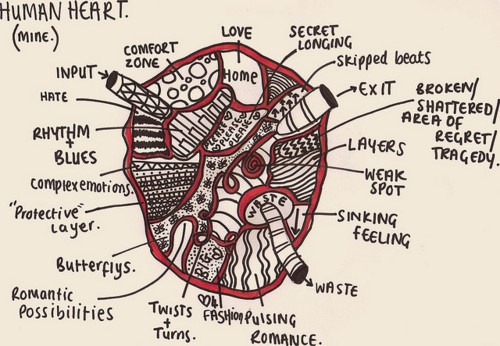 HUMAN HEART.
(MINE.)
LOVE
SECRET
LONGING
COMFORT
ZONE
skipped beats
INPUT
Home
EXIT
HATE
BROKEN/
SHATTERED/
AREA OF
REGRET/
TRAGEDY.
RHYTHM
+
BLUES
LAYERS
WEAK
SPOT
Complex emotions.
"Protective"
Layer.
WASTE
SINKING
FEELING
Butterflys.
WASTE
Romantic
Possibilities
TWISTS
+
Turns.
♡4
FASHION
PULSING
ROMANCE.